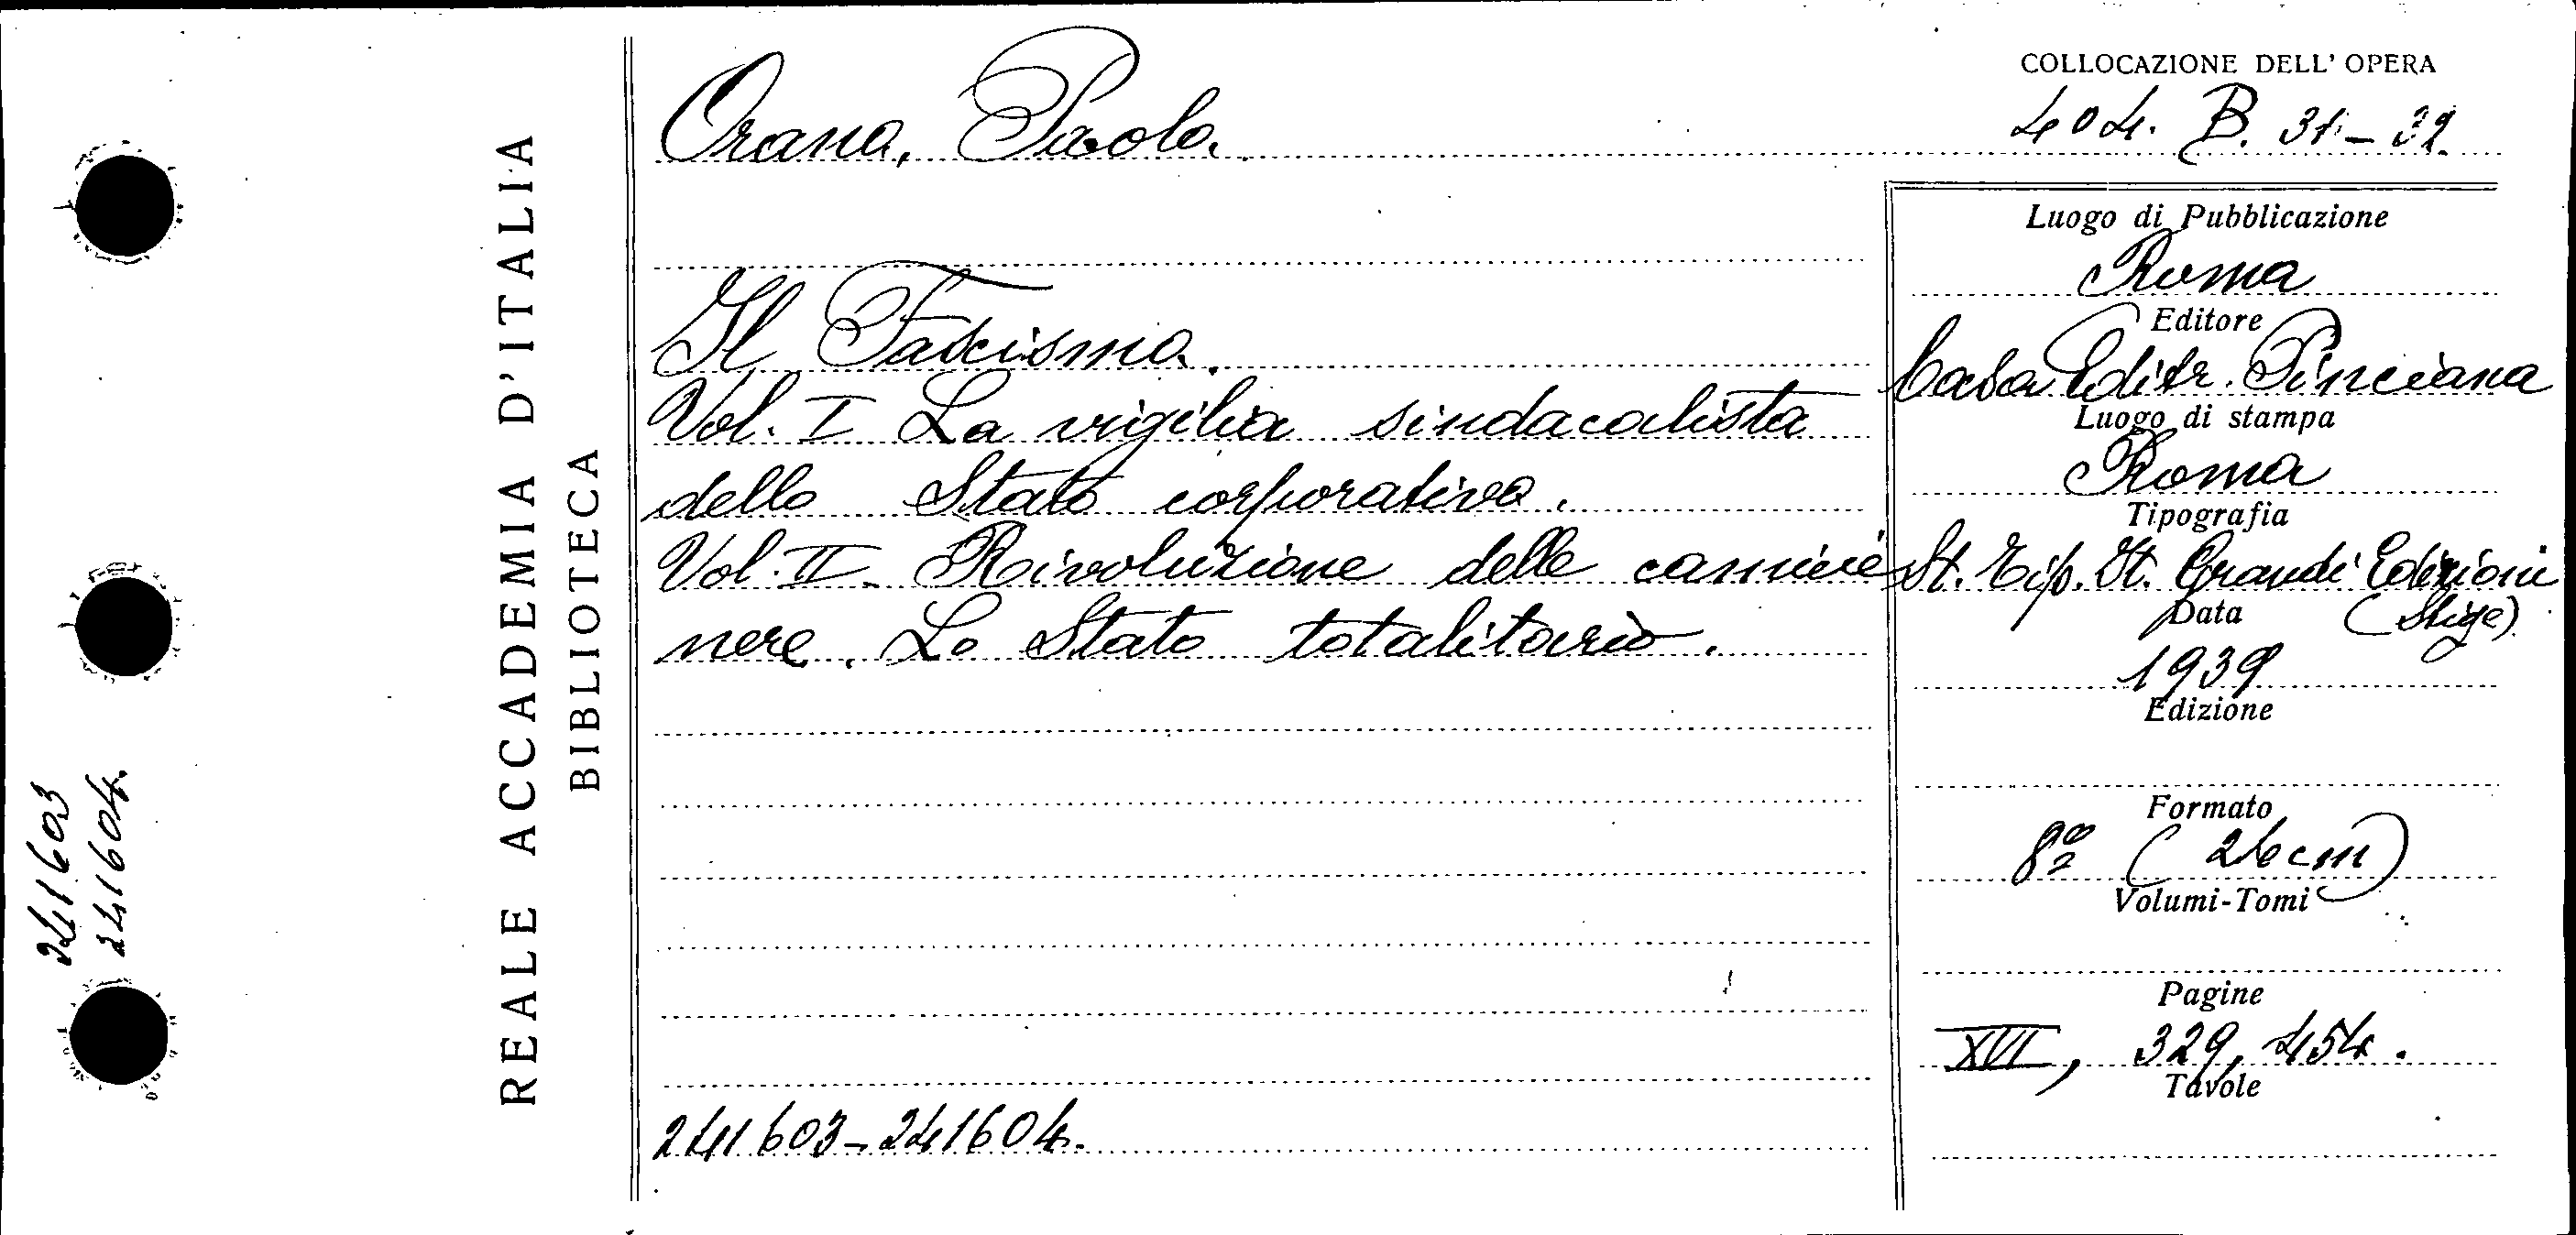 241603
241604.
REALE ACCADEMIA D'ITALIA
BIBLIOTECA
Orano, Paolo.
Il Fascismo.
Vol. I La vigilia sindacalista
dello Stato corporativo.
Vol. II. Rivoluzione delle camicie
nere. Lo Stato totalitario.
241603-241604.
COLLOCAZIONE DELL' OPERA
404. B. 31-32
Luogo di Pubblicazione
Roma
Editore
Casa Editr. Pinciana
Luogo di stampa
Roma
Tipografia
St. Tip. St. Grandi Edizioni
(Stige)
Data
1939
Edizione
Formato
8º (26 cm)
Volumi-Tomi
Pagine
XVI, 329, 454.
Tavole